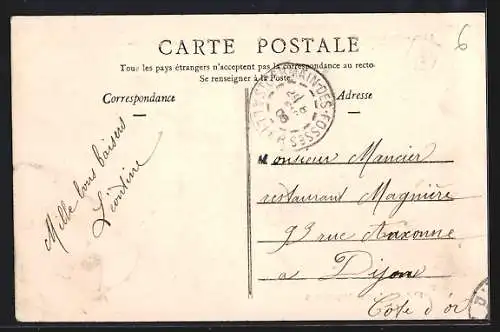 CARTE POSTALE
Tous les pays étrangers n'acceptent pas la correspondance au recto
Se renseigner à la Poste
Correspondance
Adresse
ST GERMAIN-DES-FOSSÉS
ALLIER
24
08
6
Mille bons baisers
Léontine
Monsieur Mancier
restaurant Magnière
93 rue Auxonne
a Dijon
Côte d'or